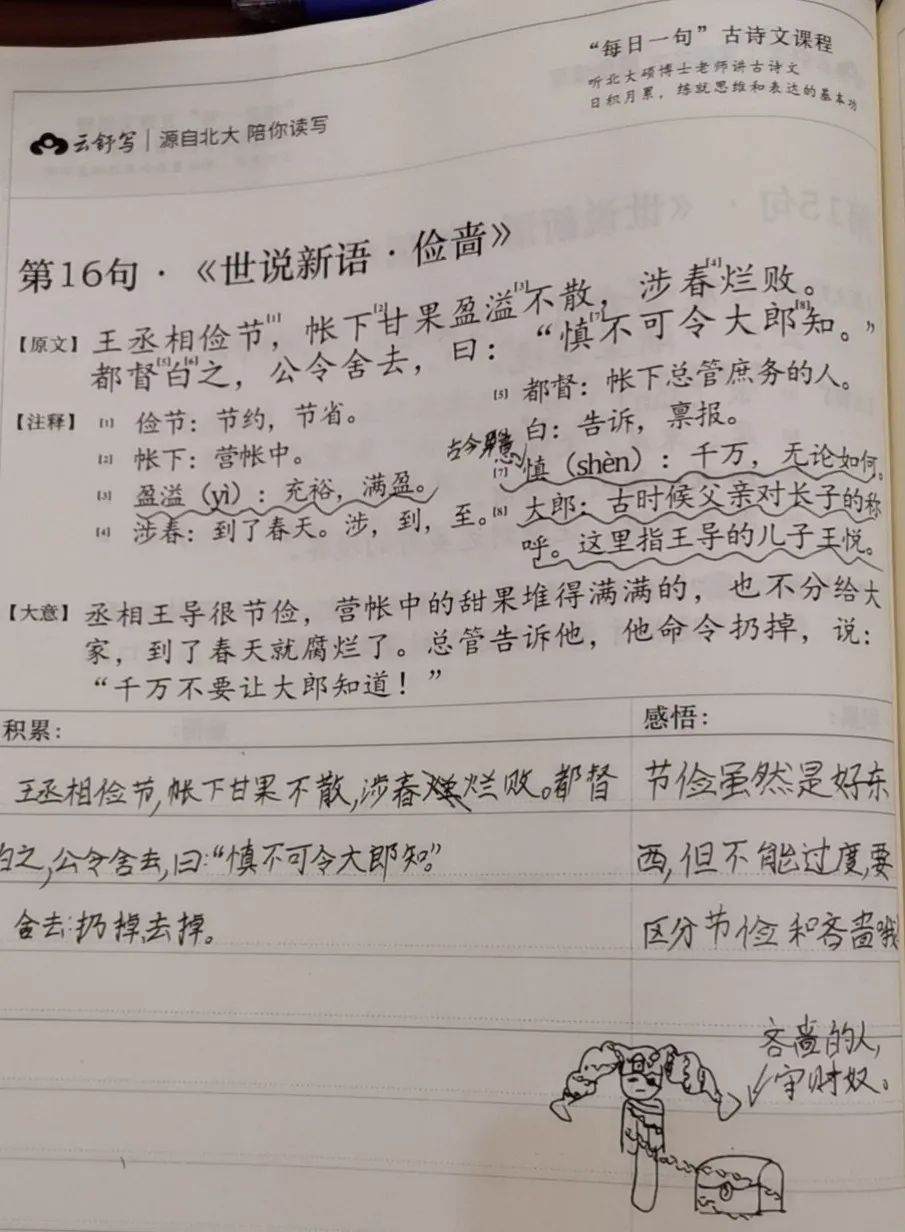 “每日一句”古诗文课程
听北大硕博士老师讲古诗文
日积月累，练就思维和表达的基本功
云舒写｜源自北大 陪你读写
第16句·《世说新语·俭啬》
【原文】王丞相俭节[1]，帐下[2]甘果盈溢[3]不散，涉春[4]烂败。
都督[5]白[6]之，公令舍去，曰：“慎[7]不可令大郎[8]知。”
【注释】[1] 俭节：节约，节省。
[2] 帐下：营帐中。
[3] 盈溢（yì）：充裕，满盈。
[4] 涉春：到了春天。涉，到，至。
[5] 都督：帐下总管庶务的人。
白：告诉，禀报。
古今异意
[7] 慎（shèn）：千万，无论如何。
[8] 大郎：古时候父亲对长子的称
呼。这里指王导的儿子王悦。
【大意】丞相王导很节俭，营帐中的甜果堆得满满的，也不分给大
家，到了春天就腐烂了。总管告诉他，他命令扔掉，说：
“千万不要让大郎知道！”
积累：
王丞相俭节，帐下甘果不散，涉春烂败。都督
白之，公令舍去，曰：“慎不可令大郎知。”
舍去：扔掉，去掉。
感悟：
节俭虽然是好东
西，但不能过度，要
区分节俭和吝啬哦
吝啬的人，
守财奴。